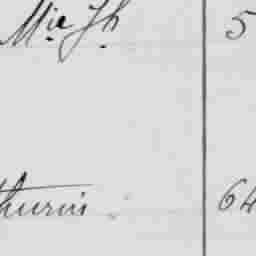 Mie Jh 5
thurin 64